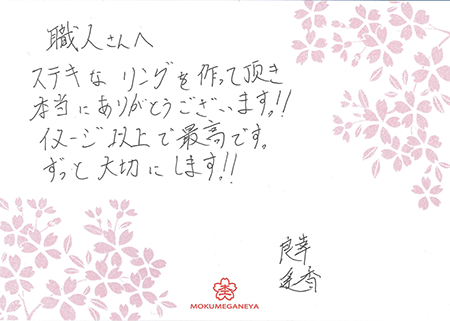 職人さんへ
ステキな リングを作って頂き
本当にありがとうございます!!
イメージ以上で最高です。
ずっと大切にします!!
MOKUMEGANEYA